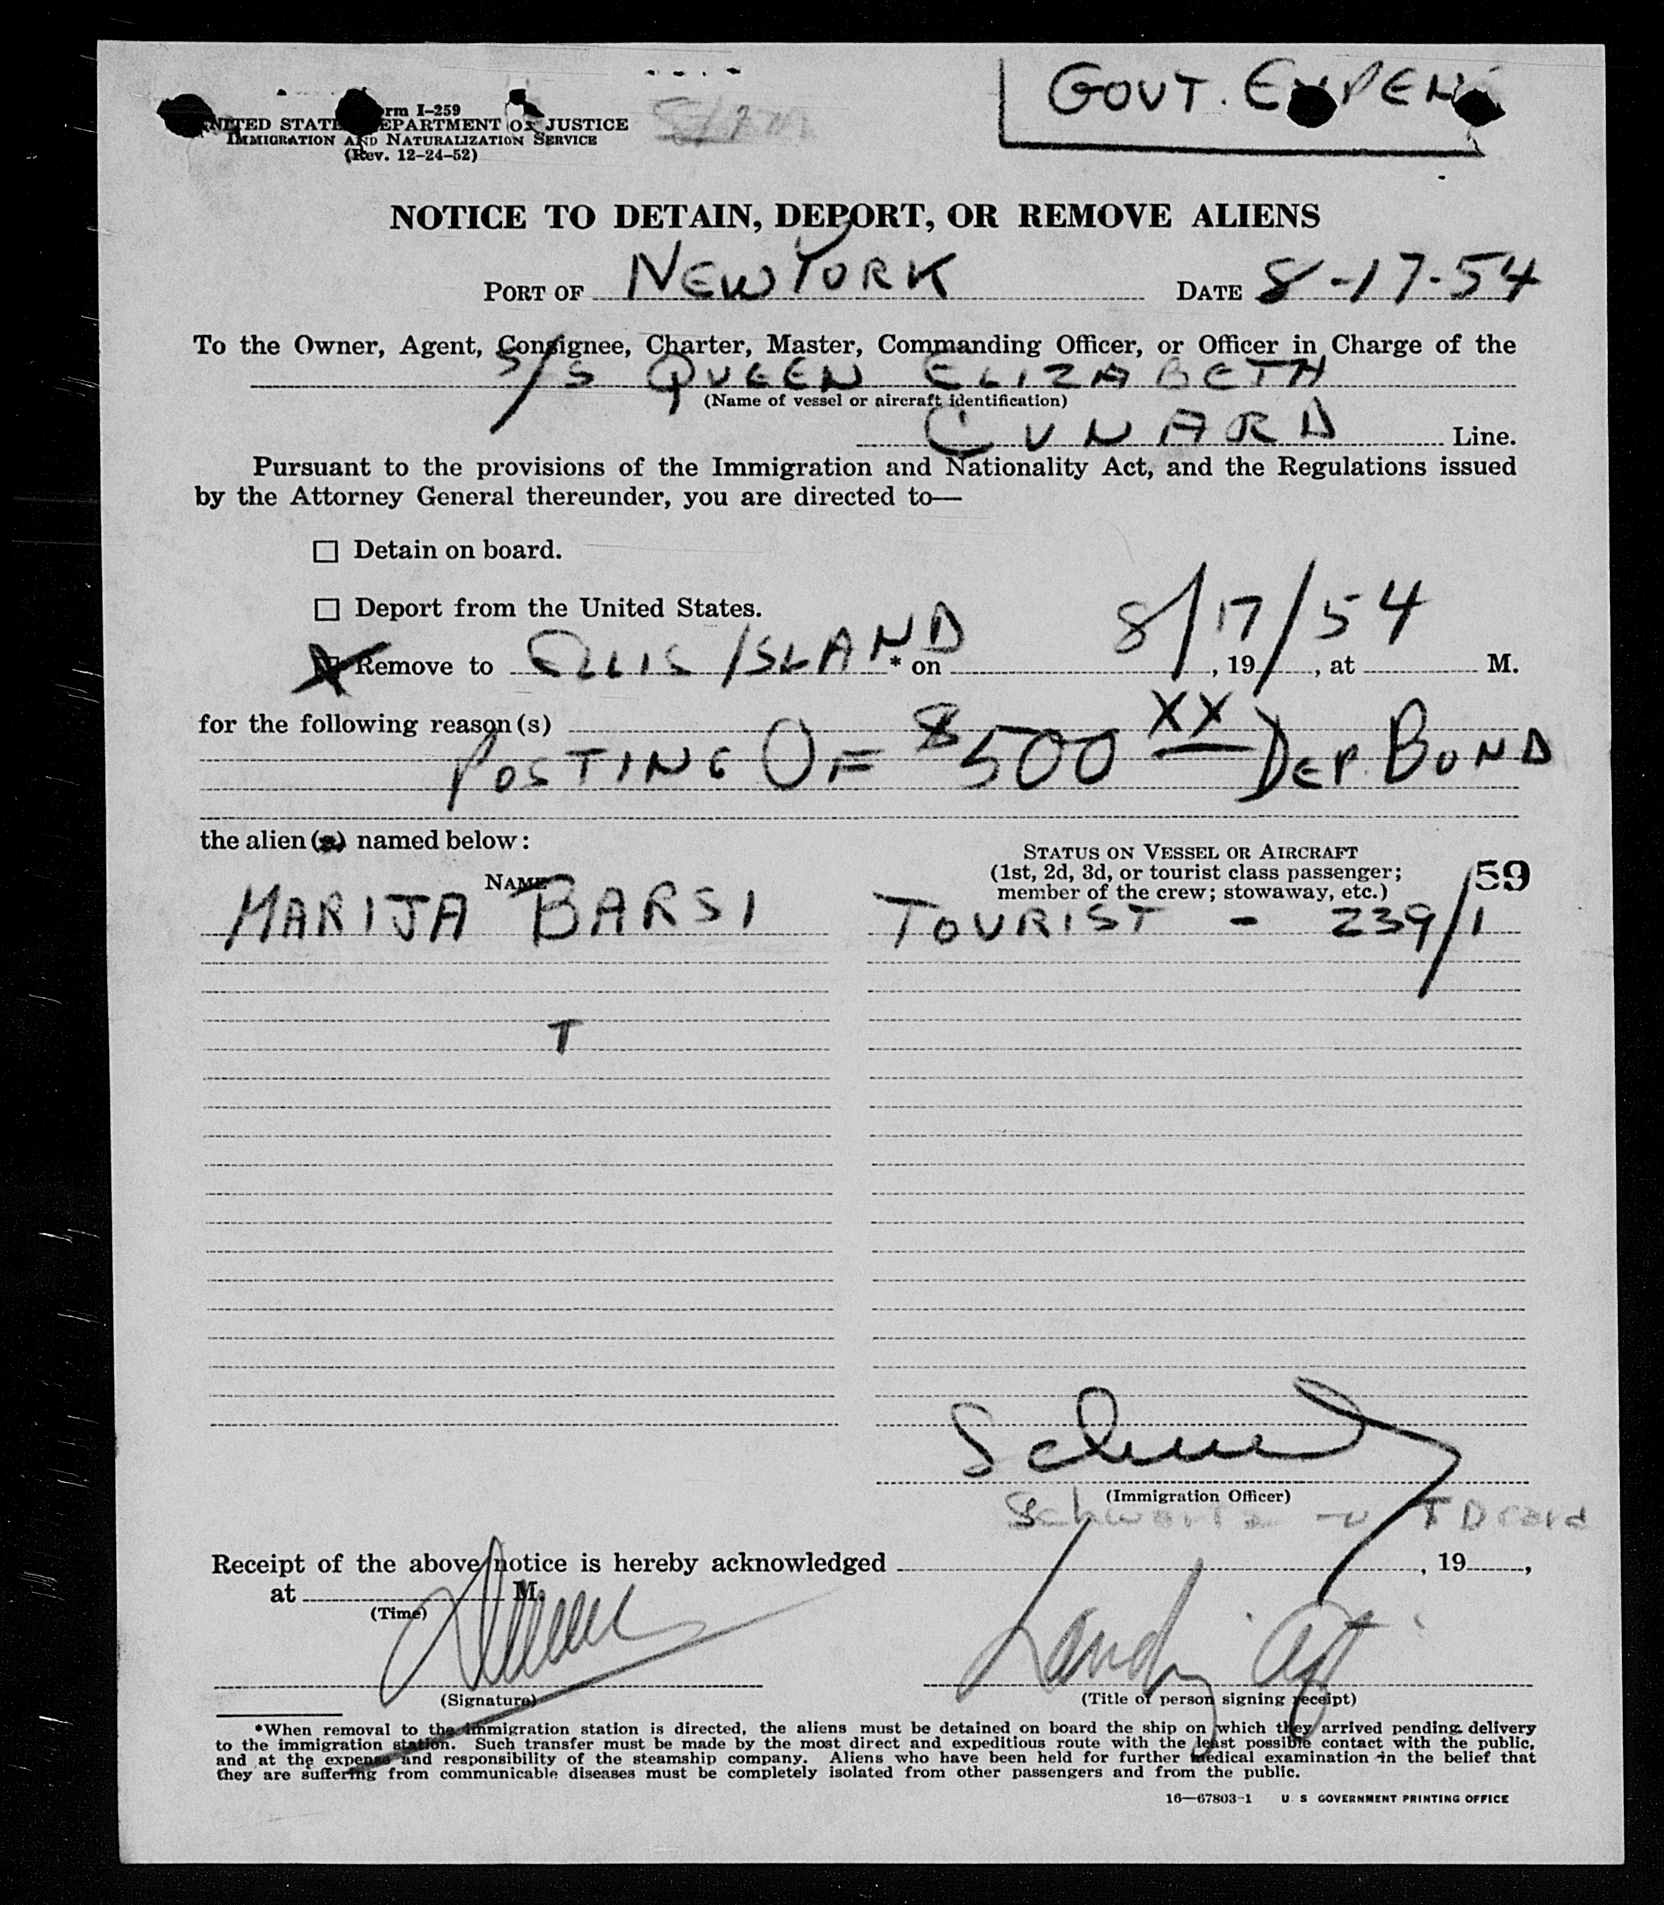 GOVT. EXPEN
Form I-259
UNITED STATES DEPARTMENT OF JUSTICE
IMMIGRATION AND NATURALIZATION SERVICE
(Rev. 12-24-52)
NOTICE TO DETAIN, DEPORT, OR REMOVE ALIENS
PORT OF NEW YORK DATE 8-17-54
To the Owner, Agent, Consignee, Charter, Master, Commanding Officer, or Officer in Charge of the
S/S QUEEN ELIZABETH
(Name of vessel or aircraft identification)
CUNARD Line.
Pursuant to the provisions of the Immigration and Nationality Act, and the Regulations issued
by the Attorney General thereunder, you are directed to—
☐ Detain on board.
☐ Deport from the United States.
☒ Remove to ELLIS ISLAND * on 8/17/54, 19, at M.
for the following reason(s)
POSTING OF $500 XX DEP. BOND
the alien(s) named below:
STATUS ON VESSEL OR AIRCRAFT
(1st, 2d, 3d, or tourist class passenger;
member of the crew; stowaway, etc.)
59
NAME
MARIJA BARSI TOURIST - 239/1
T
(Immigration Officer)
Schwartz
Receipt of the above notice is hereby acknowledged , 19 ,
at M.
(Time)
Landing Agt.
(Signature) (Title of person signing receipt)
*When removal to the immigration station is directed, the aliens must be detained on board the ship on which they arrived pending delivery
to the immigration station. Such transfer must be made by the most direct and expeditious route with the least possible contact with the public,
and at the expense and responsibility of the steamship company. Aliens who have been held for further medical examination in the belief that
they are suffering from communicable diseases must be completely isolated from other passengers and from the public.
16—67803-1 U S GOVERNMENT PRINTING OFFICE